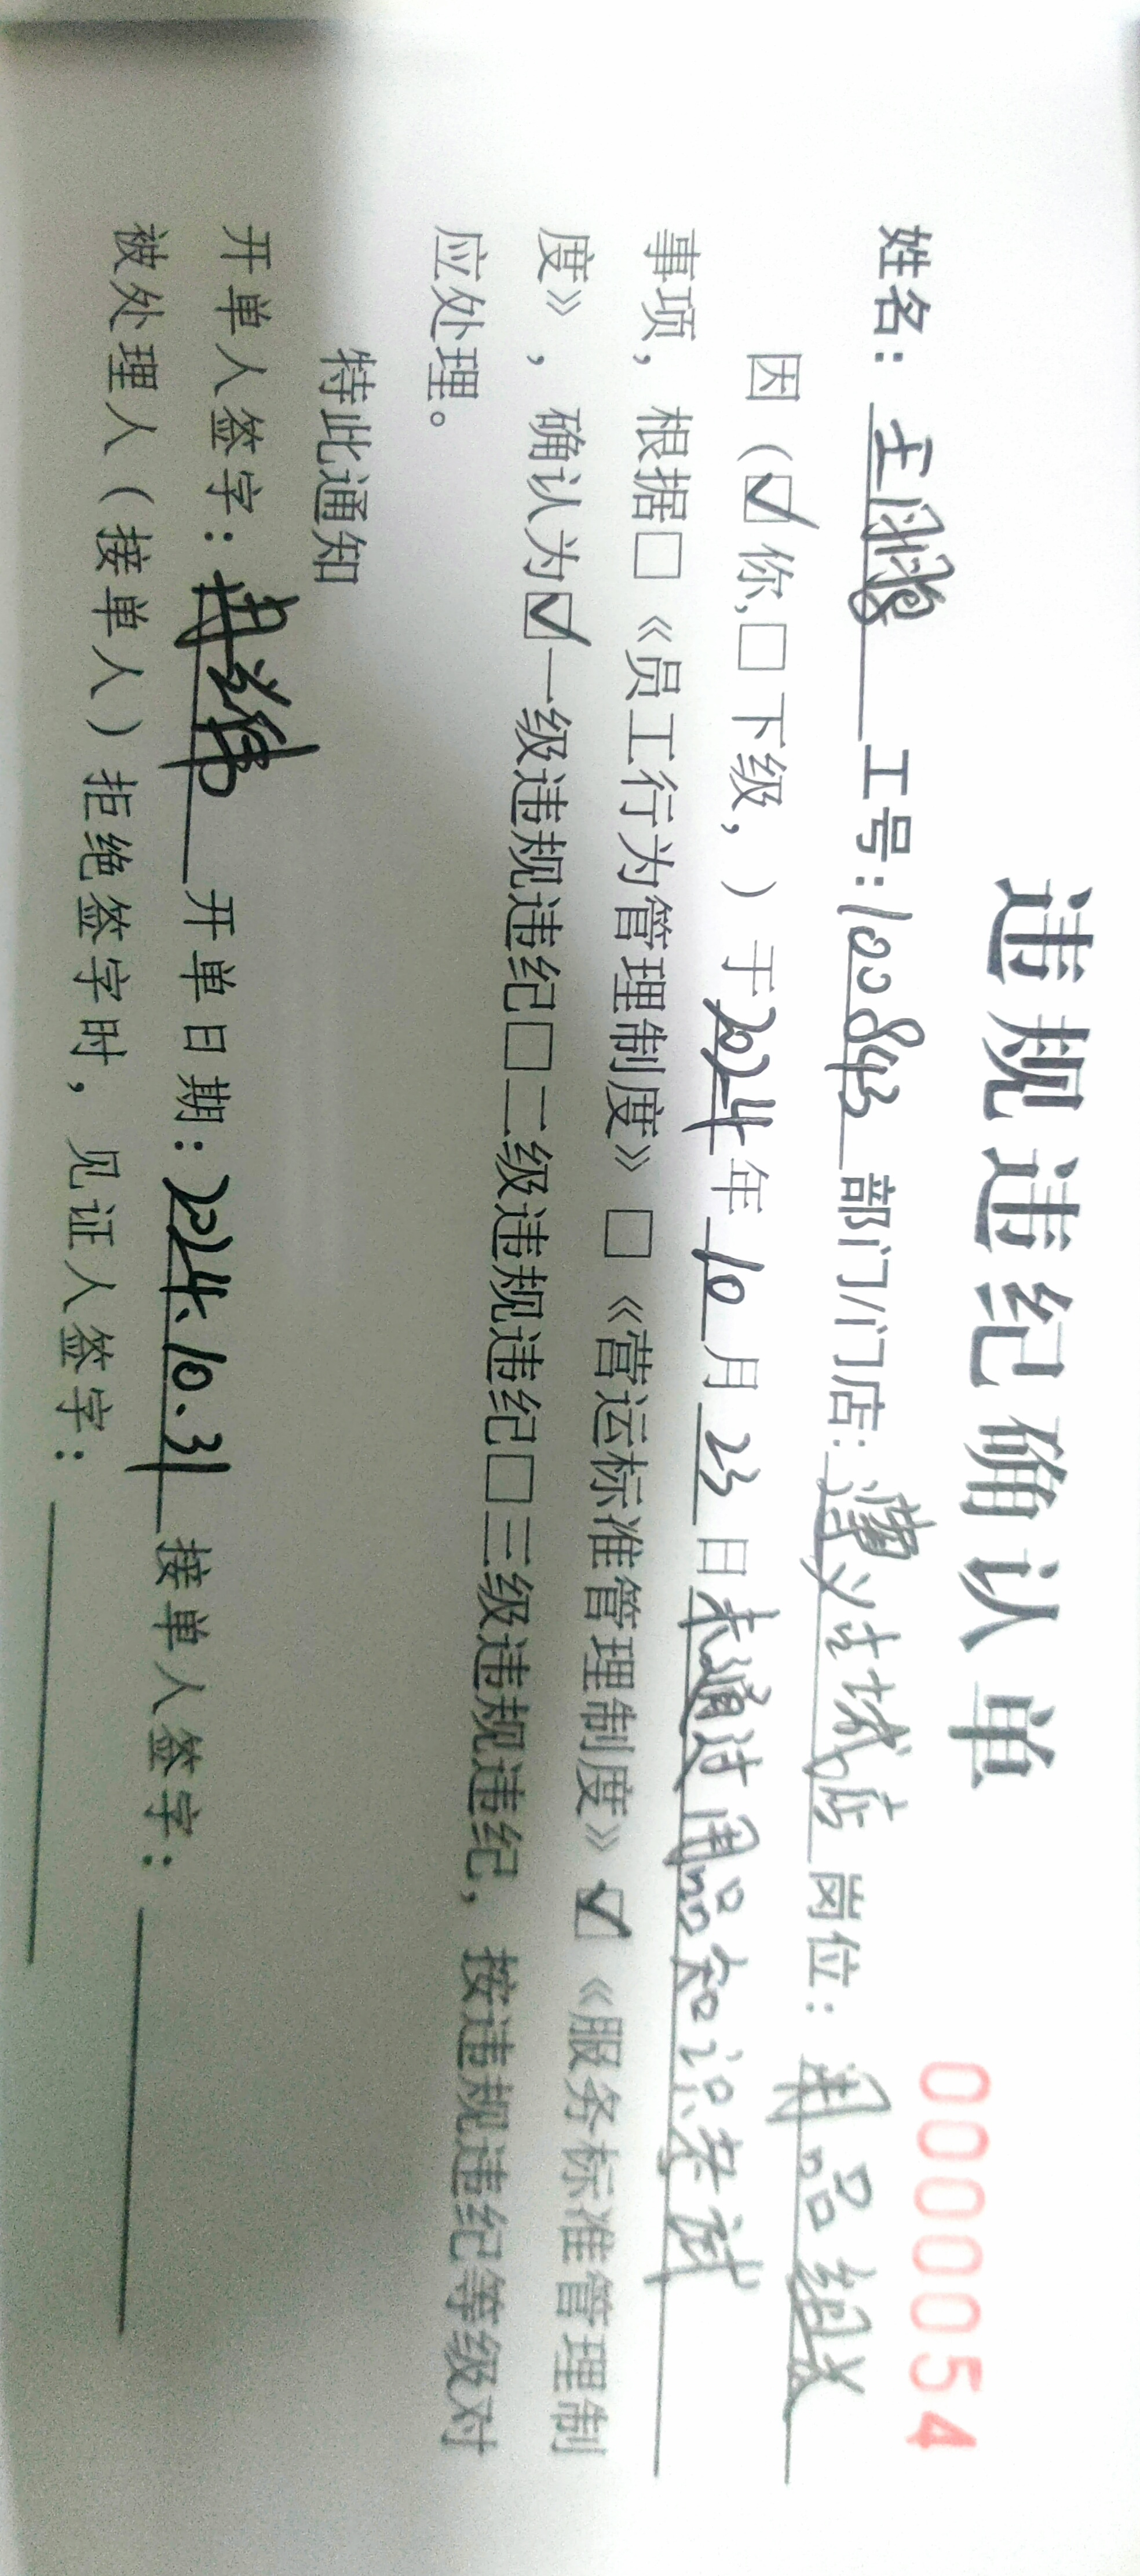 违规违纪确认单
0000054
姓名：王鹏 工号：100843 部门/门店：遵义吾悦店 岗位：用品组
因（☑你,□下级，）于2024年10月23日未通过用品知识考试
事项，根据□《员工行为管理制度》□《营运标准管理制度》☑《服务标准管理制
度》，确认为☑一级违规违纪□二级违规违纪□三级违规违纪，按违规违纪等级对
应处理。
特此通知
开单人签字： 开单日期：2024.10.31 接单人签字：
被处理人（接单人）拒绝签字时，见证人签字：